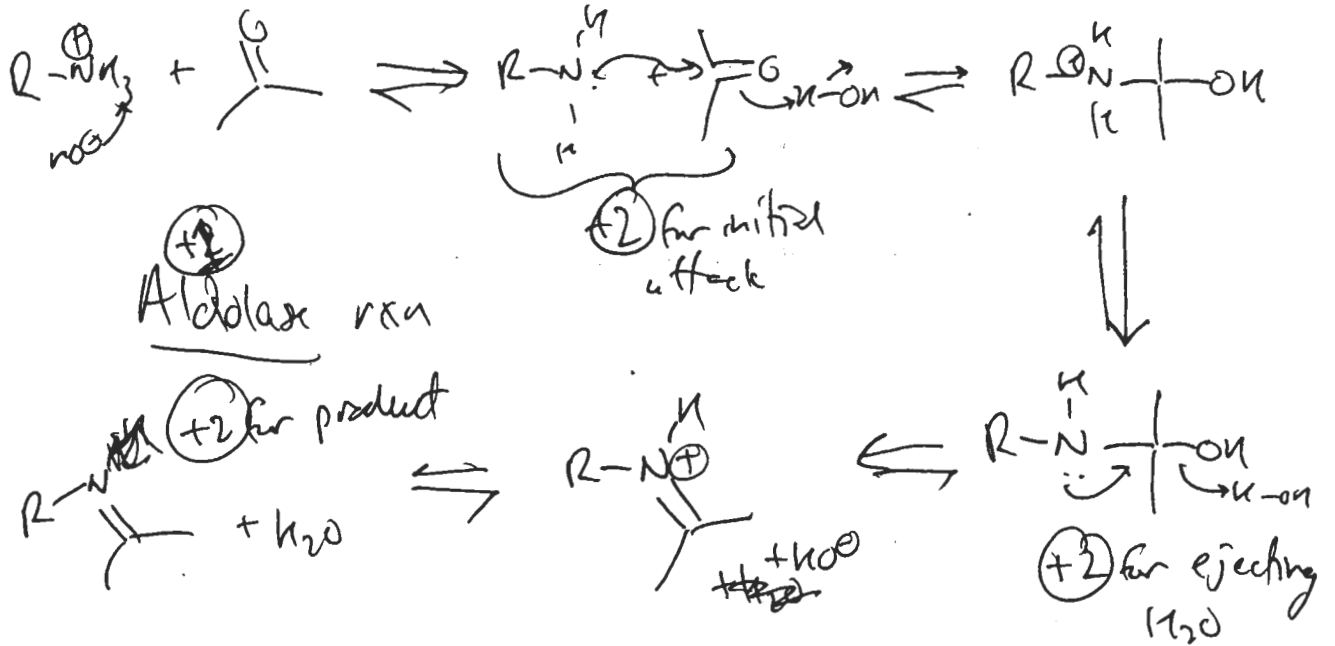 R-N⊕H3 + O
HO⊖
R-N: H H + O H-OH
R-⊕N H H OH
+2 for initial
attack
+2
Aldolase rxn
+2 for product
R-N + H2O
R-N⊕ H
+HO⊖
R-N: H OH H-OH
+2 for ejecting
H2O